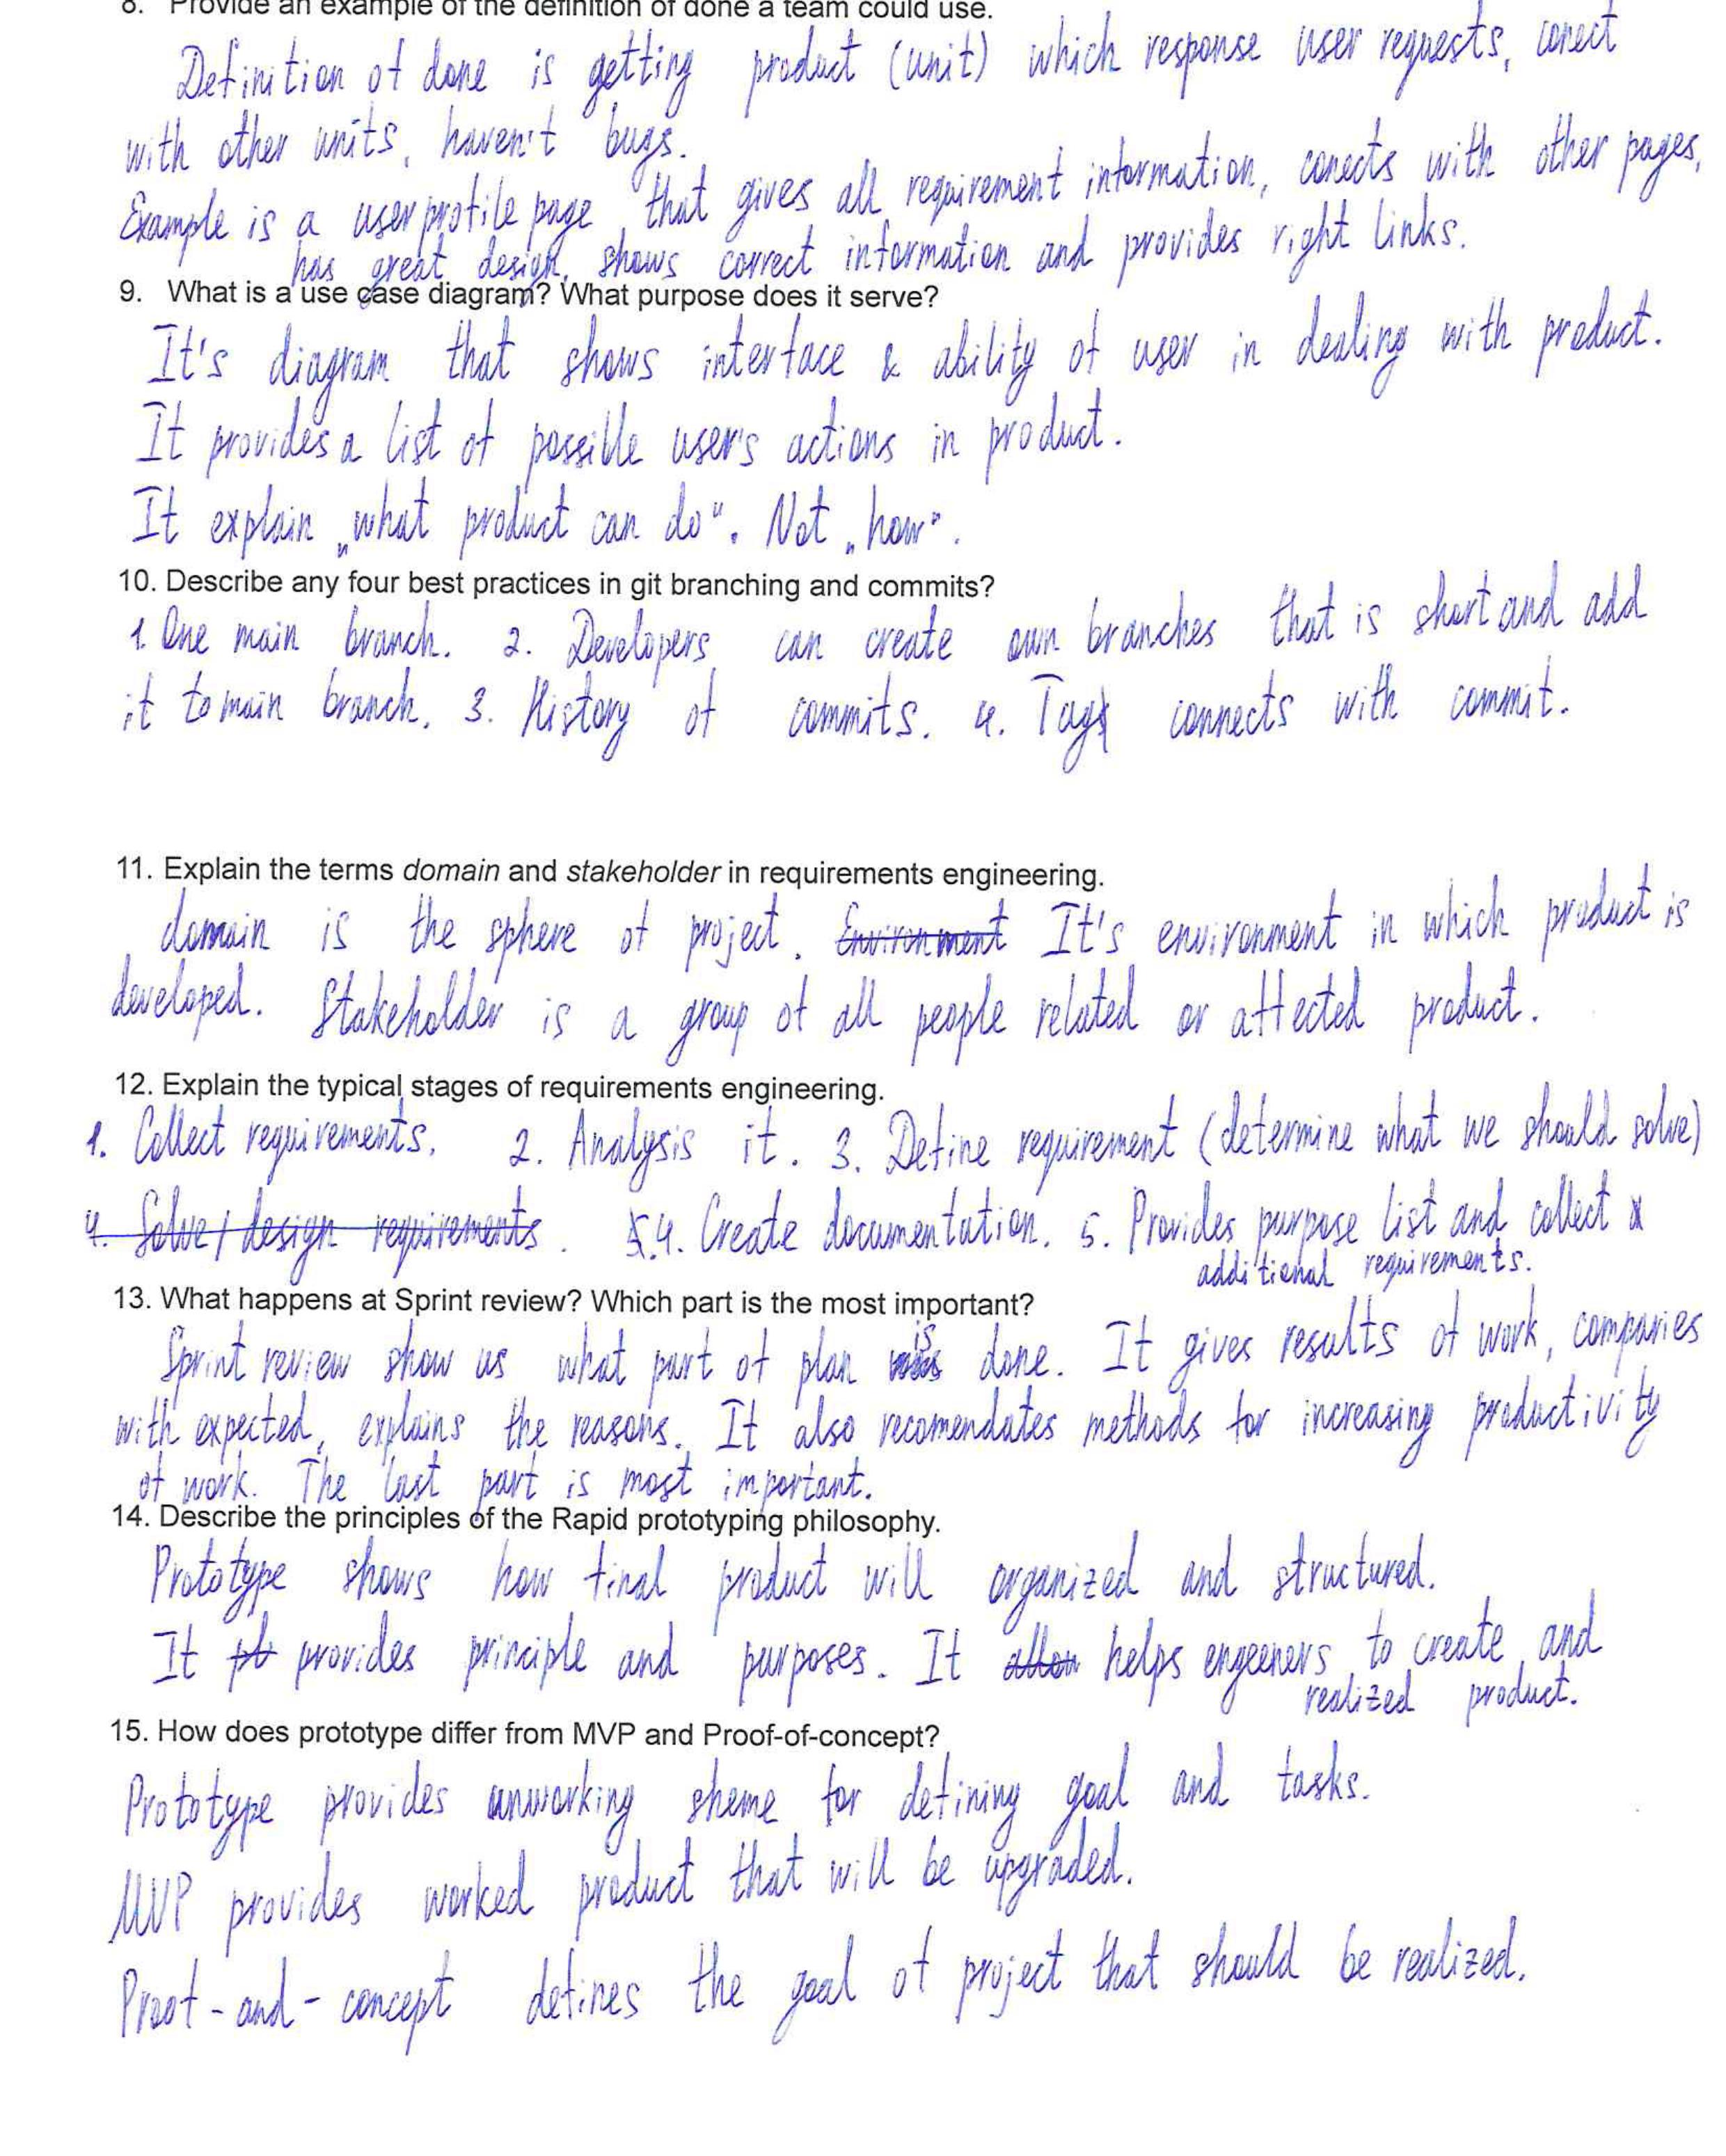 8. Provide an example of the definition of done a team could use.
Definition of done is getting product (unit) which response user requests, conect
with other units, haven't bugs.
Example is a user profile page that gives all requirement information, conects with other pages,
has great design, shows correct information and provides right links.
9. What is a use case diagram? What purpose does it serve?
It's diagram that shows interface & ability of user in dealing with product.
It provides a list of possible user's actions in product.
It explain „what product can do". Not „how".
10. Describe any four best practices in git branching and commits?
1. One main branch. 2. Developers can create own branches that is short and add
it to main branch. 3. History of commits. 4. Tags connects with commit.
11. Explain the terms domain and stakeholder in requirements engineering.
domain is the sphere of project. Environment It's environment in which product is
developed. Stakeholder is a group of all people related or affected product.
12. Explain the typical stages of requirements engineering.
1. Collect requirements. 2. Analysis it. 3. Define requirement (determine what we should solve)
4. Solve/design requirements. 4. Create documentation. 5. Provides purpose list and collect
additional requirements.
13. What happens at Sprint review? Which part is the most important?
Sprint review show us what part of plan is done. It gives results of work, comparies
with expected, explains the reasons. It also recomendates methods for increasing productivity
of work. The last part is most important.
14. Describe the principles of the Rapid prototyping philosophy.
Prototype shows how final product will organized and structured.
It provides principle and purposes. It helps engeeners to create and
realized product.
15. How does prototype differ from MVP and Proof-of-concept?
Prototype provides unworking sheme for defining goal and tasks.
MVP provides worked product that will be upgraded.
Proof-and-concept defines the goal of project that should be realized.